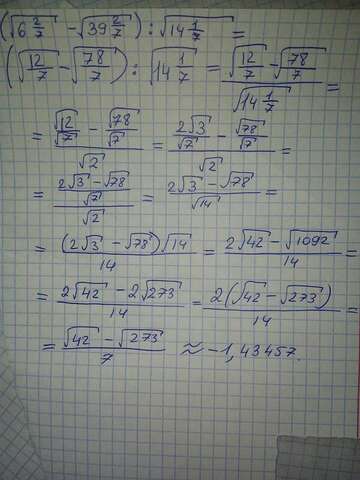 (√6 2/7 - √39 2/7) : √14 1/7 =
(√12/7 - √78/7) : √14 1/7 = (√12/7 - √78/7)/√14 1/7 =
= (√12/√7 - √78/√7)/√2 = (2√3/√7 - √78/√7)/√2 =
= ((2√3 - √78)/√7)/√2 = (2√3 - √78)/√14 =
= (2√3 - √78)√14/14 = (2√42 - √1092)/14 =
= (2√42 - 2√273)/14 = 2(√42 - √273)/14 =
= (√42 - √273)/7 ≈ -1,43457.